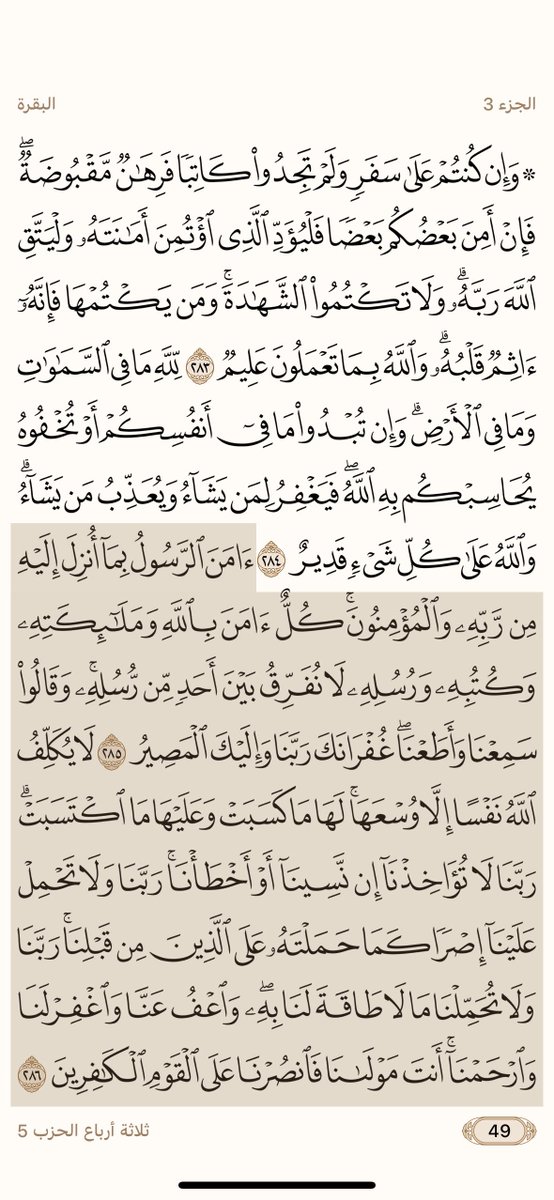 الجزء 3
البقرة
۞ وَإِن كُنتُمْ عَلَىٰ سَفَرٍ وَلَمْ تَجِدُوا۟ كَاتِبًا فَرِهَـٰنٌ مَّقْبُوضَةٌ ۖ
فَإِنْ أَمِنَ بَعْضُكُم بَعْضًا فَلْيُؤَدِّ ٱلَّذِى ٱؤْتُمِنَ أَمَـٰنَتَهُۥ وَلْيَتَّقِ
ٱللَّهَ رَبَّهُۥ ۗ وَلَا تَكْتُمُوا۟ ٱلشَّهَـٰدَةَ ۚ وَمَن يَكْتُمْهَا فَإِنَّهُۥٓ
ءَاثِمٌ قَلْبُهُۥ ۗ وَٱللَّهُ بِمَا تَعْمَلُونَ عَلِيمٌ ٢٨٣ لِّلَّهِ مَا فِى ٱلسَّمَـٰوَٰتِ
وَمَا فِى ٱلْأَرْضِ ۗ وَإِن تُبْدُوا۟ مَا فِىٓ أَنفُسِكُمْ أَوْ تُخْفُوهُ
يُحَاسِبْكُم بِهِ ٱللَّهُ ۖ فَيَغْفِرُ لِمَن يَشَآءُ وَيُعَذِّبُ مَن يَشَآءُ ۗ
وَٱللَّهُ عَلَىٰ كُلِّ شَىْءٍ قَدِيرٌ ٢٨٤ ءَامَنَ ٱلرَّسُولُ بِمَآ أُنزِلَ إِلَيْهِ
مِن رَّبِّهِۦ وَٱلْمُؤْمِنُونَ ۚ كُلٌّ ءَامَنَ بِٱللَّهِ وَمَلَـٰٓئِكَتِهِۦ
وَكُتُبِهِۦ وَرُسُلِهِۦ لَا نُفَرِّقُ بَيْنَ أَحَدٍ مِّن رُّسُلِهِۦ ۚ وَقَالُوا۟
سَمِعْنَا وَأَطَعْنَا ۖ غُفْرَانَكَ رَبَّنَا وَإِلَيْكَ ٱلْمَصِيرُ ٢٨٥ لَا يُكَلِّفُ
ٱللَّهُ نَفْسًا إِلَّا وُسْعَهَا ۚ لَهَا مَا كَسَبَتْ وَعَلَيْهَا مَا ٱكْتَسَبَتْ ۗ
رَبَّنَا لَا تُؤَاخِذْنَآ إِن نَّسِينَآ أَوْ أَخْطَأْنَا ۚ رَبَّنَا وَلَا تَحْمِلْ
عَلَيْنَآ إِصْرًا كَمَا حَمَلْتَهُۥ عَلَى ٱلَّذِينَ مِن قَبْلِنَا ۚ رَبَّنَا
وَلَا تُحَمِّلْنَا مَا لَا طَاقَةَ لَنَا بِهِۦ ۖ وَٱعْفُ عَنَّا وَٱغْفِرْ لَنَا
وَٱرْحَمْنَآ ۚ أَنتَ مَوْلَىٰنَا فَٱنصُرْنَا عَلَى ٱلْقَوْمِ ٱلْكَـٰفِرِينَ ٢٨٦
49
ثلاثة أرباع الحزب 5